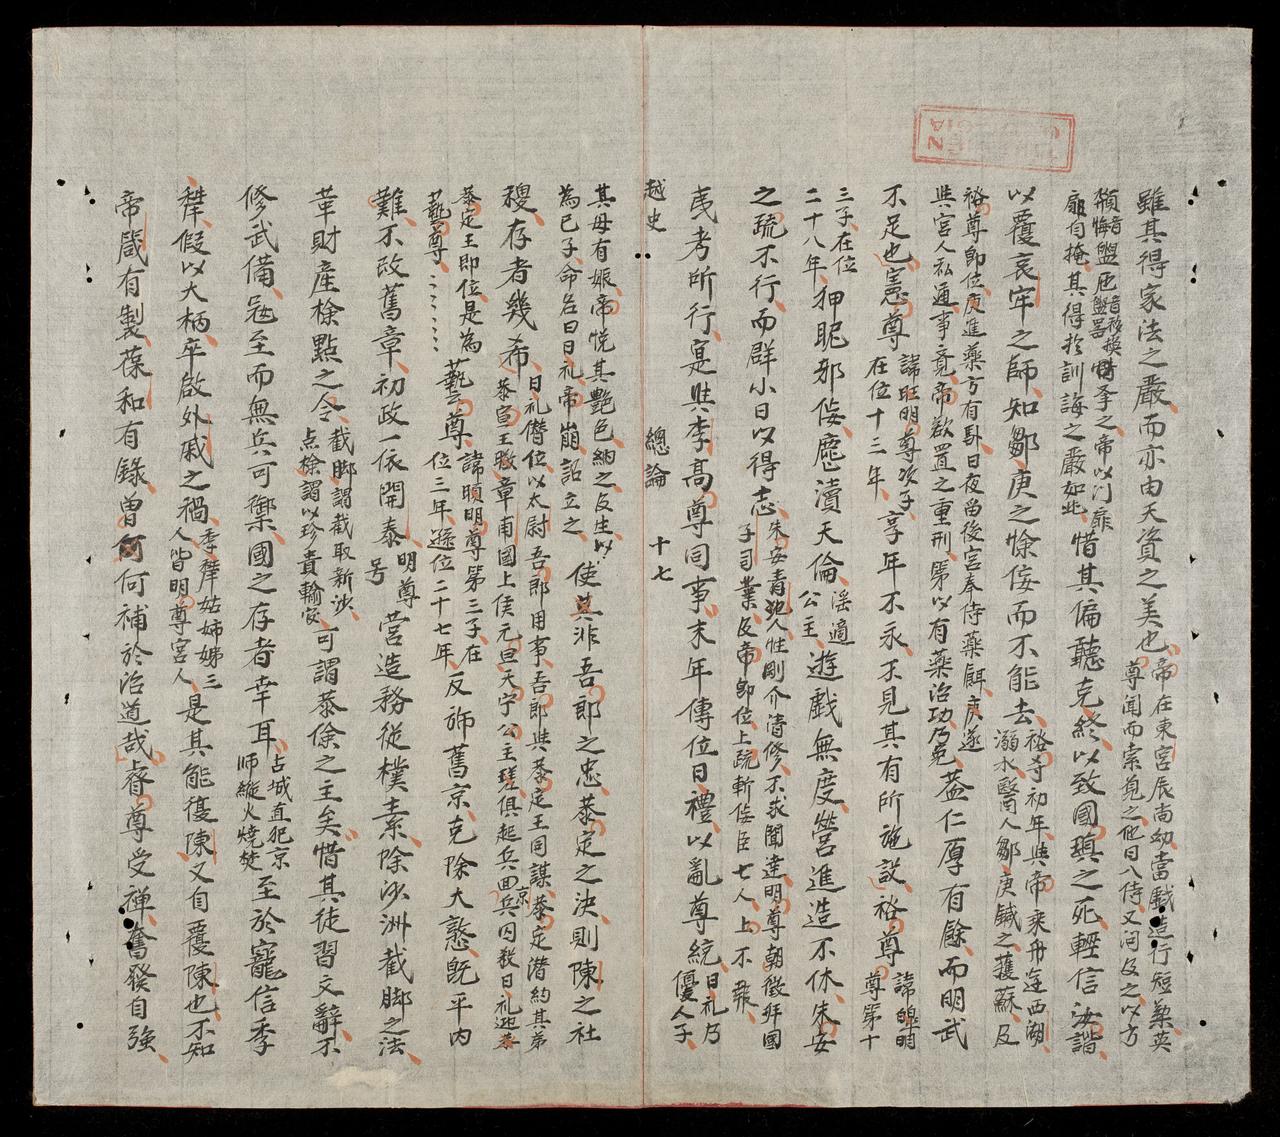 雖其得家法之嚴而亦由天資之美也帝在東宮辰尚幼當戲造行短藥英
尊聞而索覓之他日入侍又问及之以方
額悔音盥匜音移換 季之帝以门扉
扉自掩其得於訓誨之嚴如此惜其偏聽克終以致國瑱之死輕信汝諧
以覆哀牢之師知鄒庚之憸侫而不能去裕尊初年與帝乘舟遊西湖
溺水醫人鄒庚鍼之獲蘇及
裕尊即位庚進藥方有馭日夜留後宮奉侍藥餌庚遂
與宮人私通事竟帝欲置之重刑第以有藥治功乃免蓋仁厚有餘而明武
不足也憲尊諱旺明尊次子
在位十三年享年不永不見其有所施設裕尊諱暭明
尊第十
三子在位
二十八年狎昵邪侫塵瀆天倫淫適
公主遊戲無度營進造不休朱安
之疏不行而群小日以得志朱安青池人性剛介清修不求聞達明尊朝徵拜國
子司業及帝即位上疏斬侫臣七人上不報
夷考所行寔與李高尊同事末年傳位日禮以亂尊統日礼乃
優人子
越史 總論 十七
其母有娠帝悅其艷色納之及生以
為已子命名曰日礼帝崩詔立之使其非吾郎之忠恭定之決則陳之社
稷存者幾希日礼僣位以太尉吾郎用事吾郎與恭定王同謀恭定潜約其弟
恭宣王暾章甫國上侯元旦天宁公主瑳俱起兵回京兵囚殺日礼迎恭
恭定王即位是為
藝尊藝尊諱暊明尊第三子在
位三年遜位二十七年反斾舊京克除大憝旣平内
難不改舊章初政一依開泰明尊
号营造務從樸素除沙洲截脚之法
革財産檢點之令截脚謂截取新沙
点檢謂以珍貴輸官可謂恭儉之主矣惜其徒習文辭不
修武備冦至而無兵可禦國之存者幸耳占城直犯京
师縱火燒焚至於寵信季
犛假以大柄卒啟外戚之禍季犛姑姊娣三
人皆明尊宮人是其能復陳又自覆陳也不知
帝箴有製葆和有錄曾何何補於治道哉睿尊受禅奮發自強